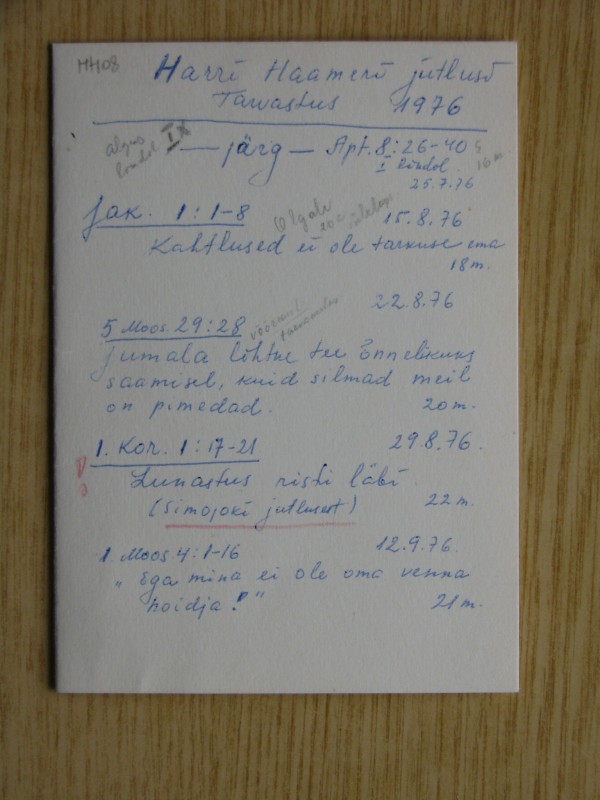 MH08
Harri Haameri jutlusi
Tarvastus 1976
algus
lindol IX
— järg — Apt. 8:26-40
I lindol 16 m
25.7.76
Jak. 1:1-8 15.8.76
Kahtlused ei ole tarkuse ema
18 m.
22.8.76
5 Moos. 29:28
Jumala lihtne tee õnnelikuks
saamisel, kuid silmad meil
on pimedad. 20 m.
! 1. Kor. 1:17-21 29.8.76.
Lunastus risti läbi
(Simojoki jutlusest) 22 m.
1. Moos. 4:1-16 12.9.76.
"Ega mina ei ole oma venna
hoidja!" 21 m.